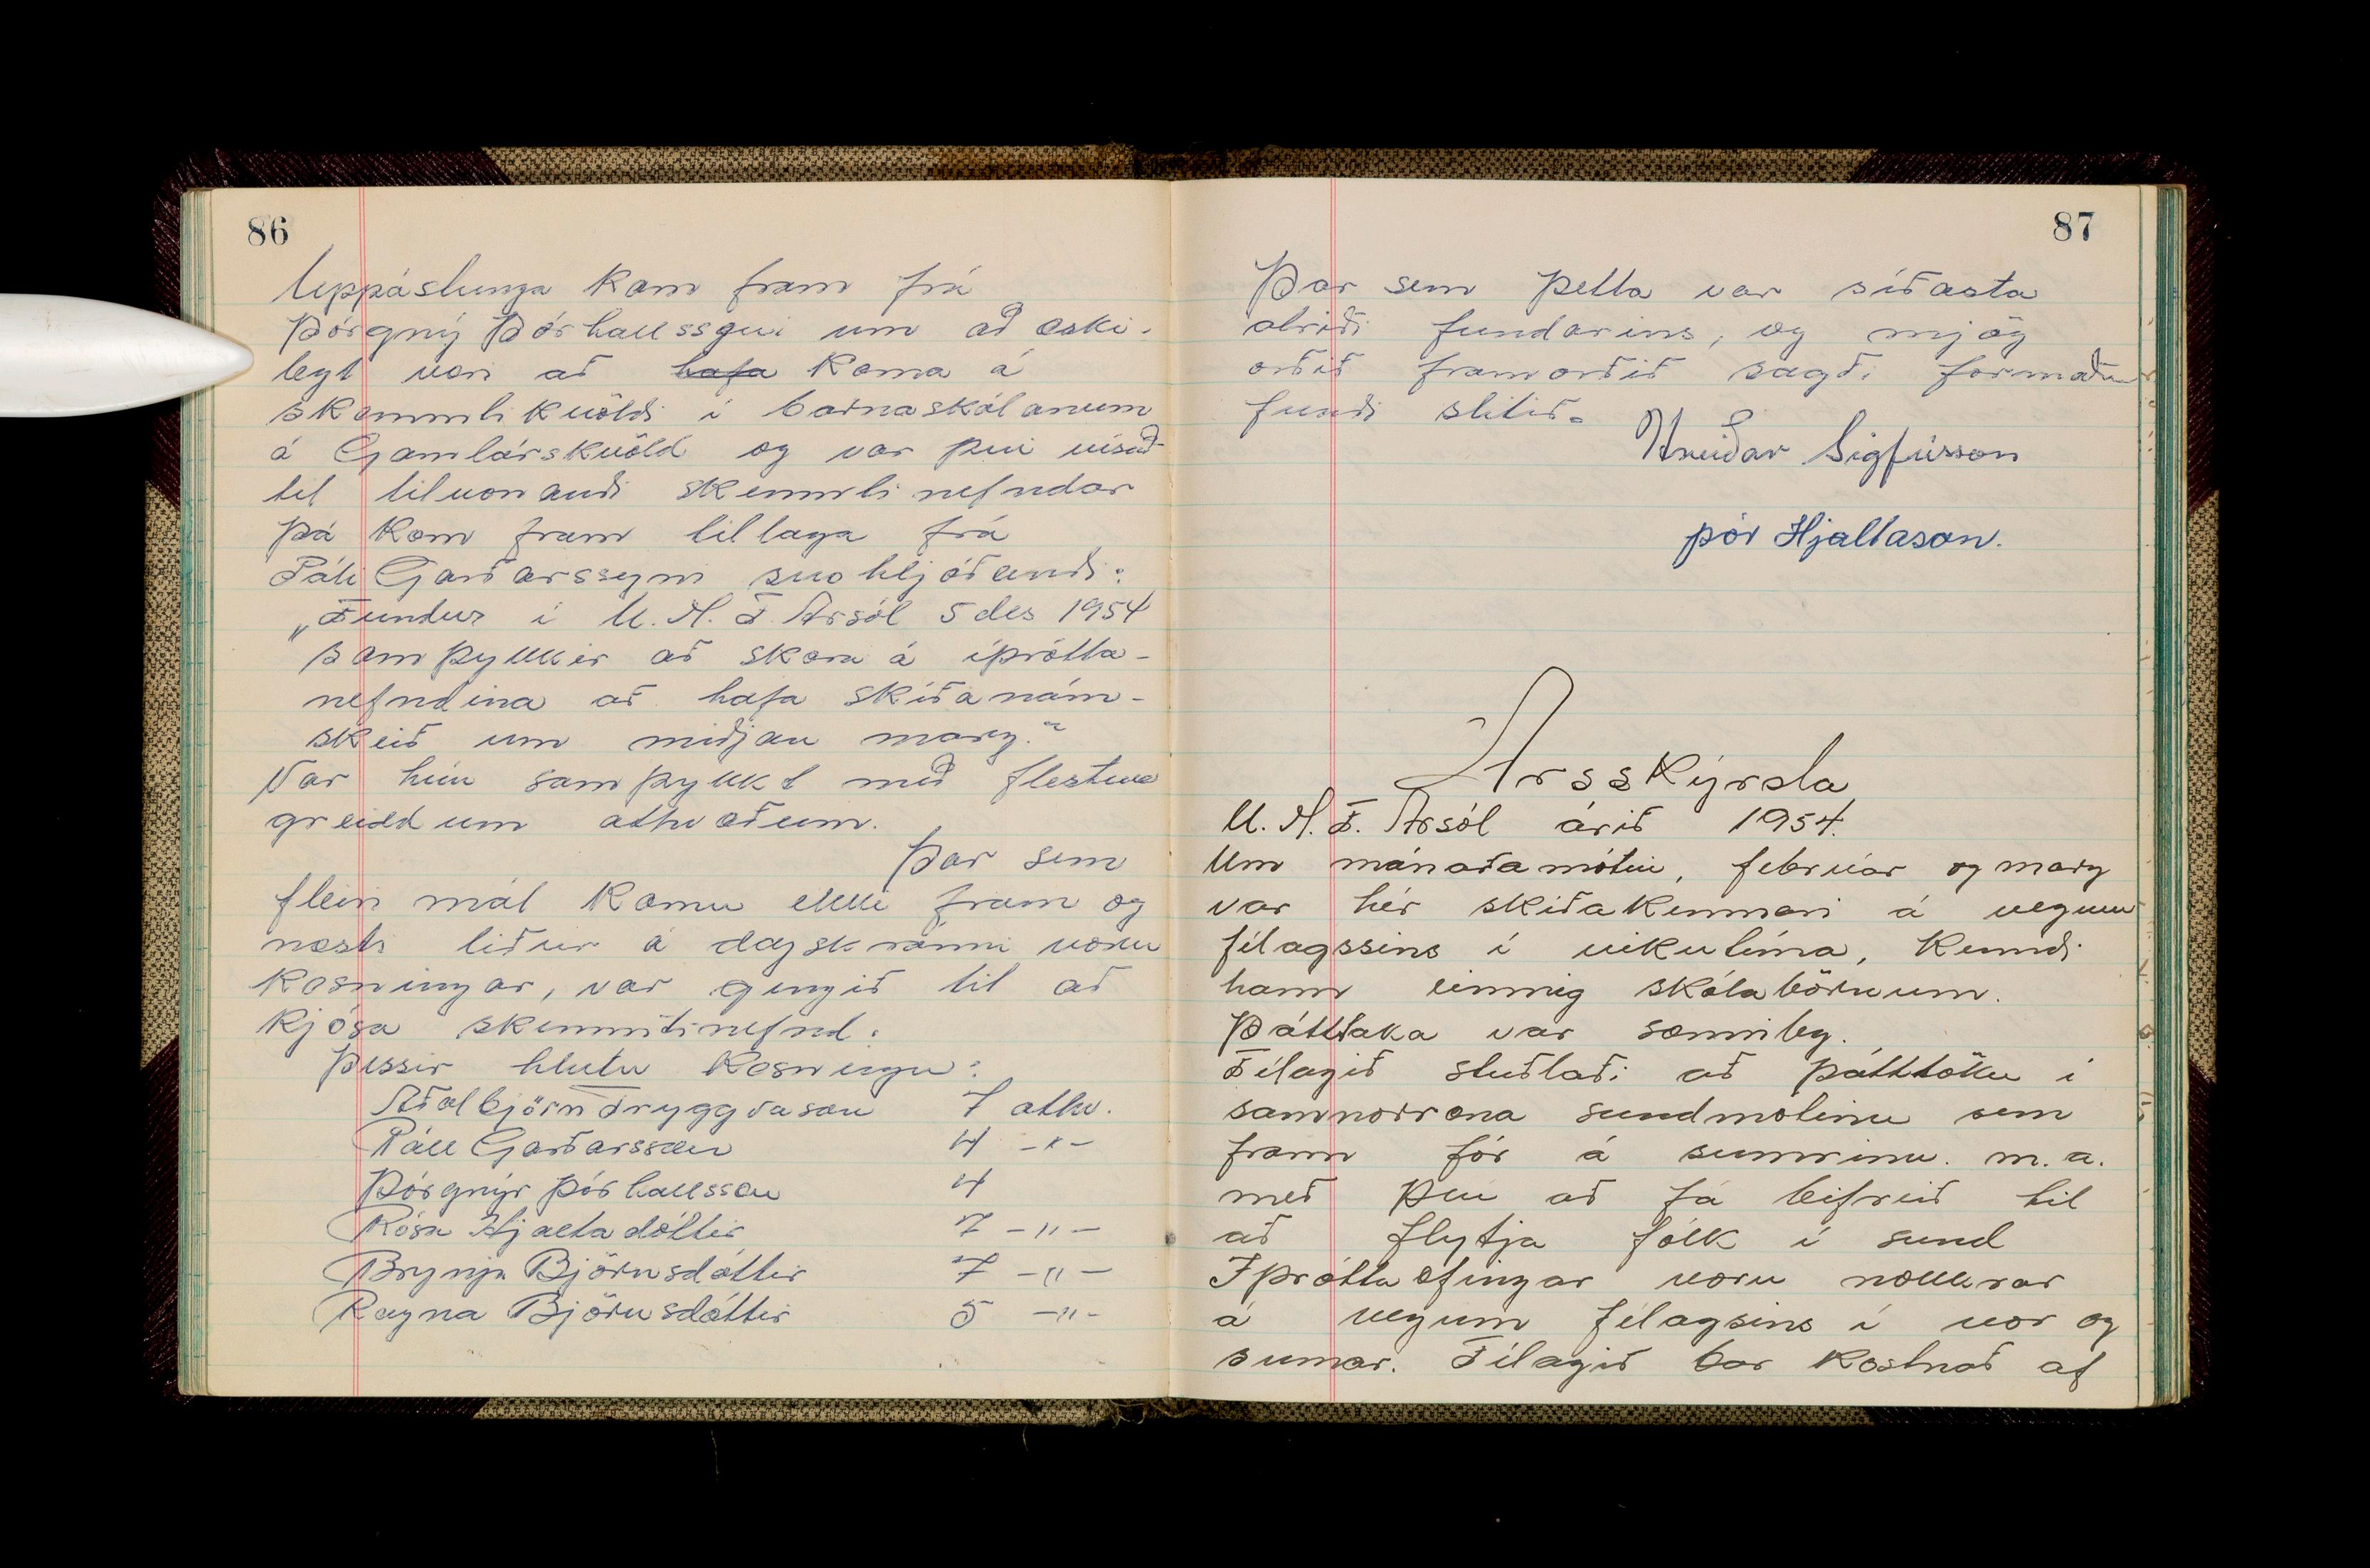 86
Uppástunga kom fram frá
Þórgný Þórhallssyni um að æski-
legt væri að hafa koma á
skemmtikvöldi í barnaskólanum
á Gamlárskvöld og var því vísað
til tilvonandi skemmtinefndar
Þá kom fram tillaga frá
Páli Garðarssyni svohljóðandi:
„Fundur í U.M.F. Ársól 5 des 1954
samþykkir að skora á íþrótta-
nefndina að hafa skíðanám-
skeið um miðjan marz."
Var hún samþykkt með flestum
greiddum atkvæðum.
Þar sem
fleiri mál komu ekki fram og
næsti liður á dagskránni voru
kosningar, var gengið til að
kjósa skemmtinefnd.
Þessir hlutu kosningu:
Aðalbjörn Tryggvason 7 atkv.
Páll Garðarsson 4 -"-
Þórgnýr Þórhallsson 4
Rósa Hjaltadóttir 7 -"-
Brynja Björnsdóttir 7 -"-
Ragna Björnsdóttir 5 -"-
87
Þar sem þetta var síðasta
atriði fundarins, og mjög
orðið framorðið sagði formaður
fundi slitið.
Hreiðar Sigfússon
Þór Hjaltason.
Ársskýrsla
U.M.F. Ársól árið 1954.
Um mánaðamótin, febrúar og marz
var hér skíðakennari á vegum
félagssins í vikutíma, kenndi
hann einnig skólabörnum.
Þátttaka var sæmileg.
Félagið stuðlaði að þátttöku í
samnorræna sundmótinu sem
fram fór á sumrinu. m.a.
með því að fá bifreið til
að flytja fólk í sund
Íþróttaæfingar voru nokkrar
á vegum félagsins í vor og
sumar. Félagið bar kostnað af